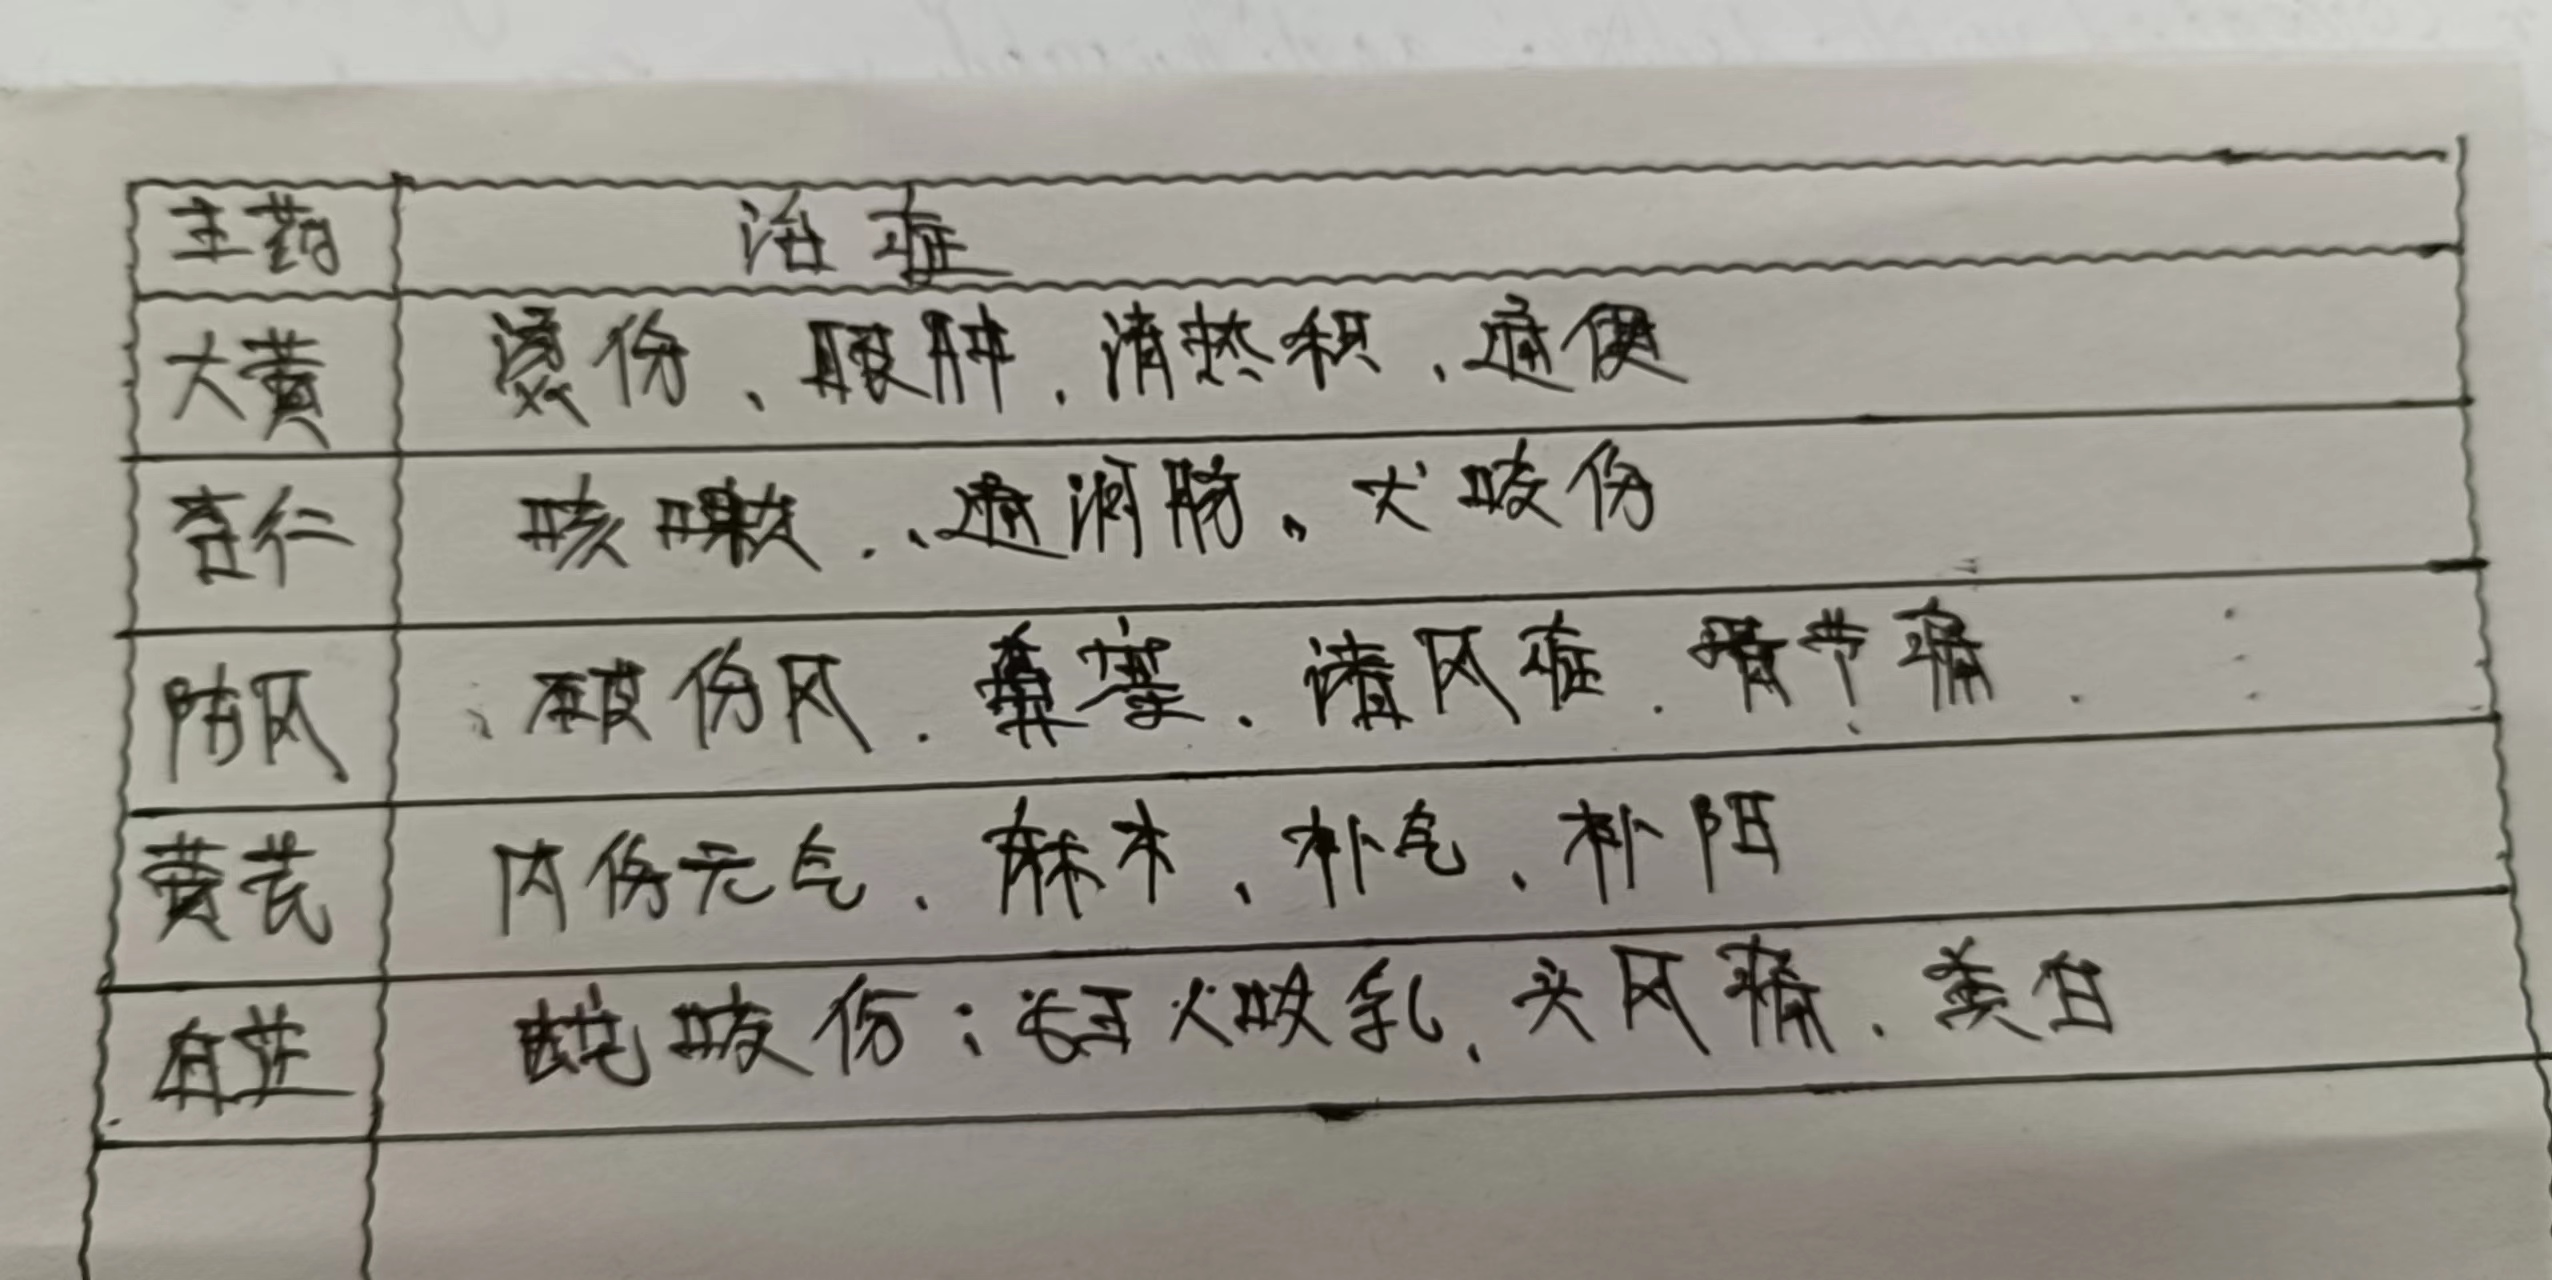 主药 治症
大黄 烫伤、腿肿、清热积、通便
杏仁 咳嗽、通润肠、犬咬伤
防风 破伤风、鼻塞、诸风症、骨节痛
黄芪 内伤元气、麻木、补气、补阳
白芷 蛇咬伤；咬乳、头风痛、美白